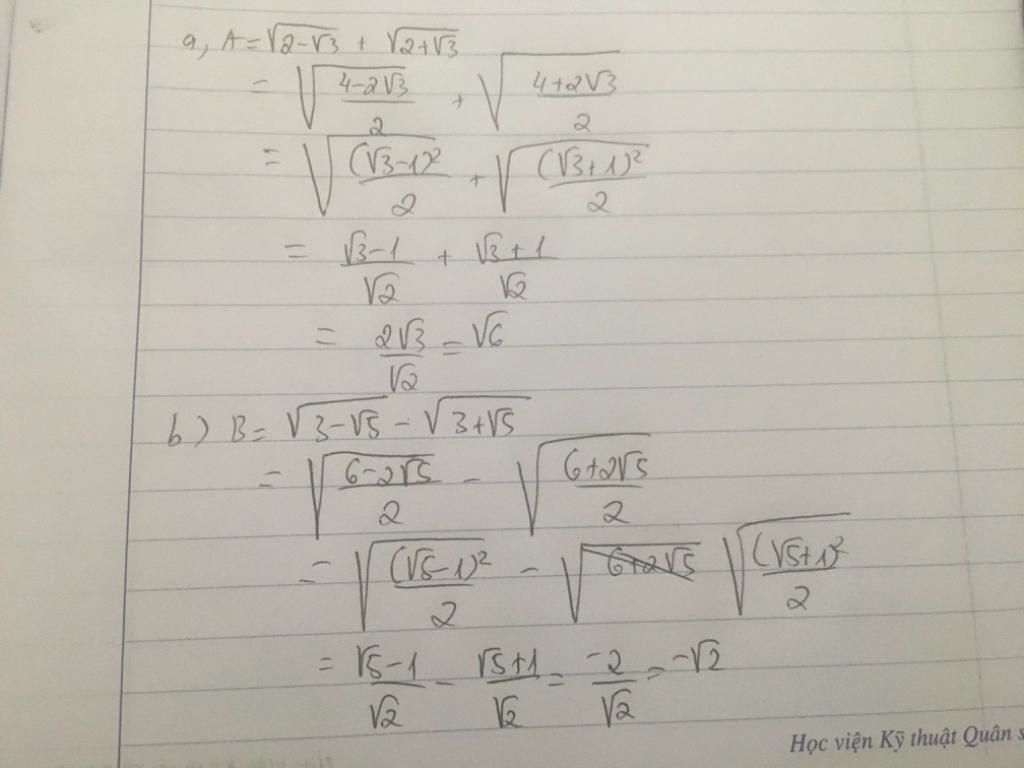 a, A = √(2-√3) + √(2+√3)
= √((4-2√3)/2) + √((4+2√3)/2)
= √((√3-1)²/2) + √((√3+1)²/2)
= (√3-1)/√2 + (√3+1)/√2
= 2√3/√2 = √6
b) B = √(3-√5) - √(3+√5)
= √((6-2√5)/2) - √((6+2√5)/2)
= √((√5-1)²/2) - √(6+2√5) √((√5+1)²/2)
= (√5-1)/√2 - (√5+1)/√2 = -2/√2 = -√2
Học viện Kỹ thuật Quân s